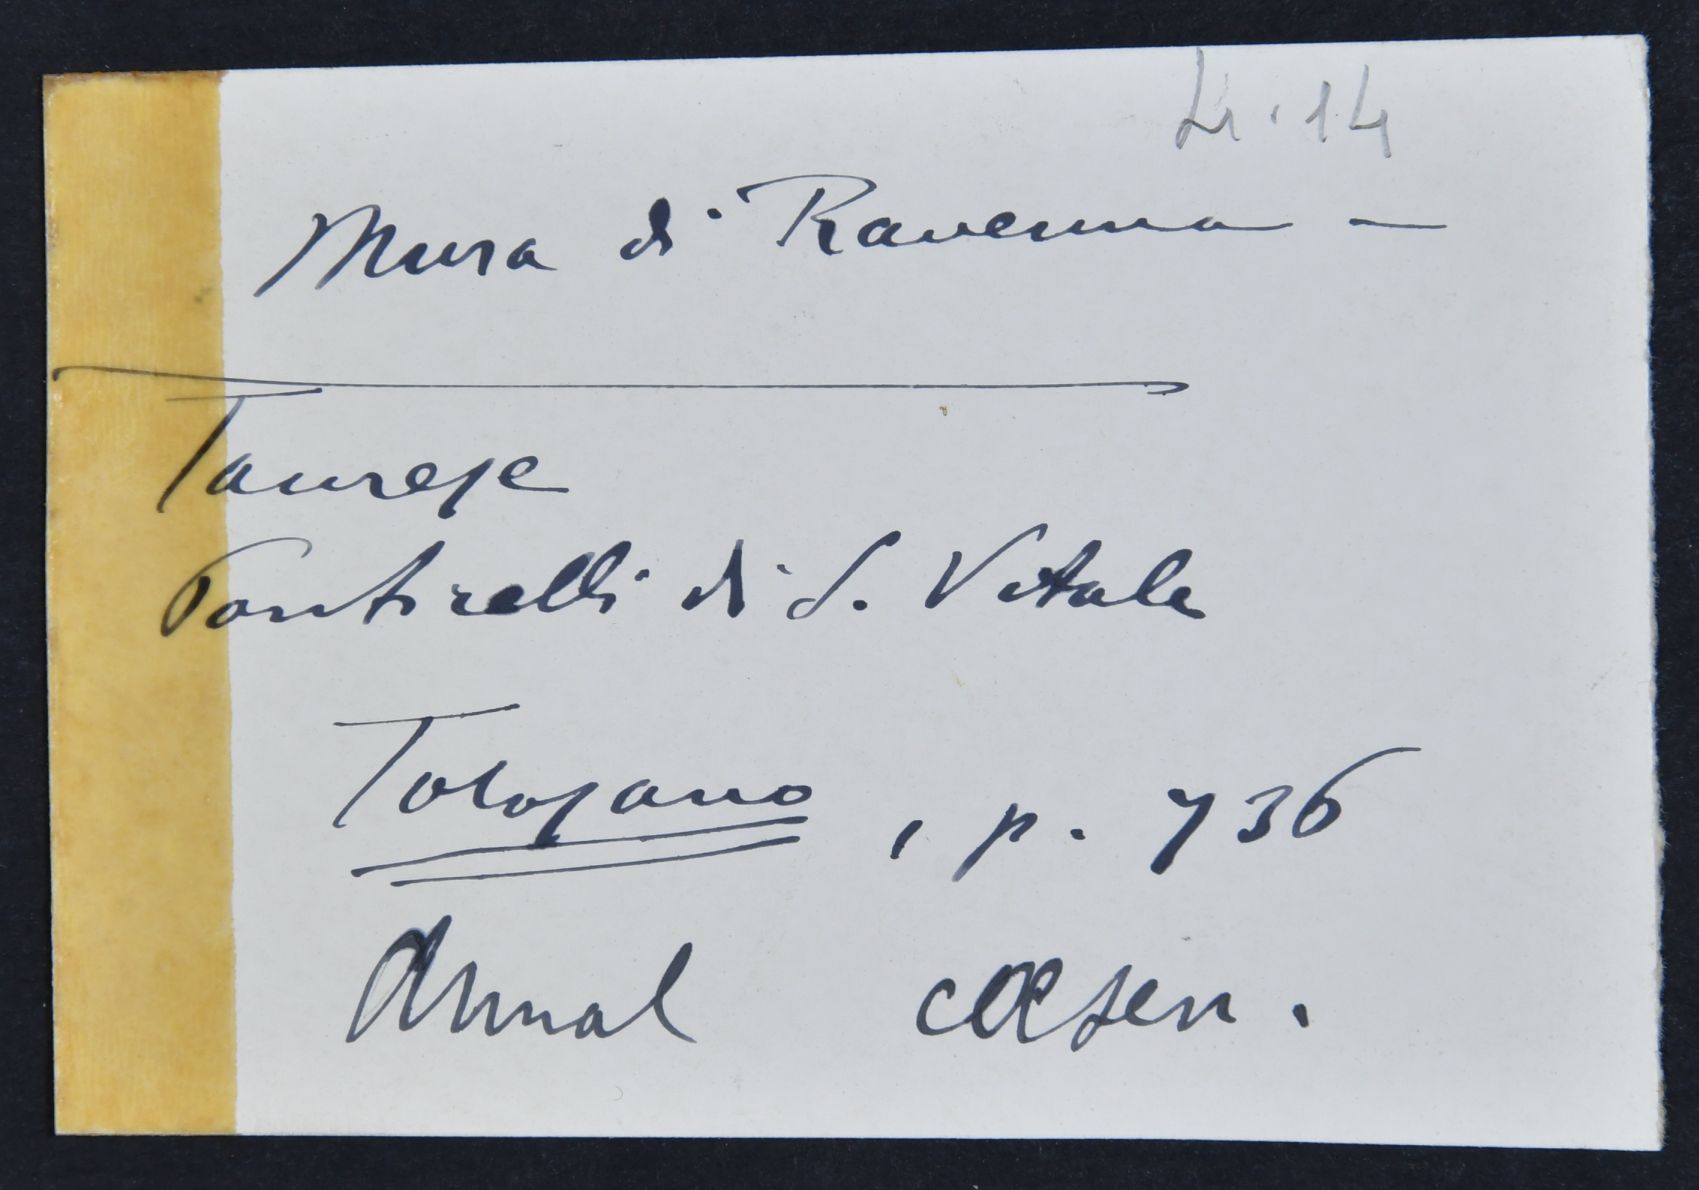 Lr. 14
Mura di Ravenna –
Taurese
Ponticelli di S. Vitale
Tolosano, p. 736
Annal caesen.